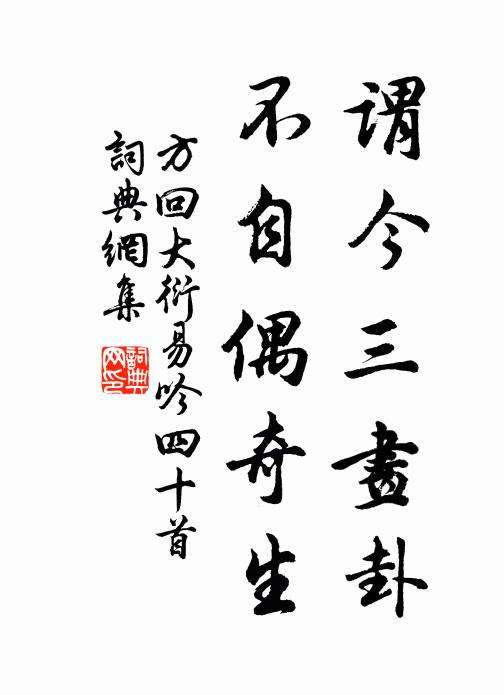 謂今三畫卦
不自偶奇生
方回大衍易吟四十首
詞典網集
詞典网印